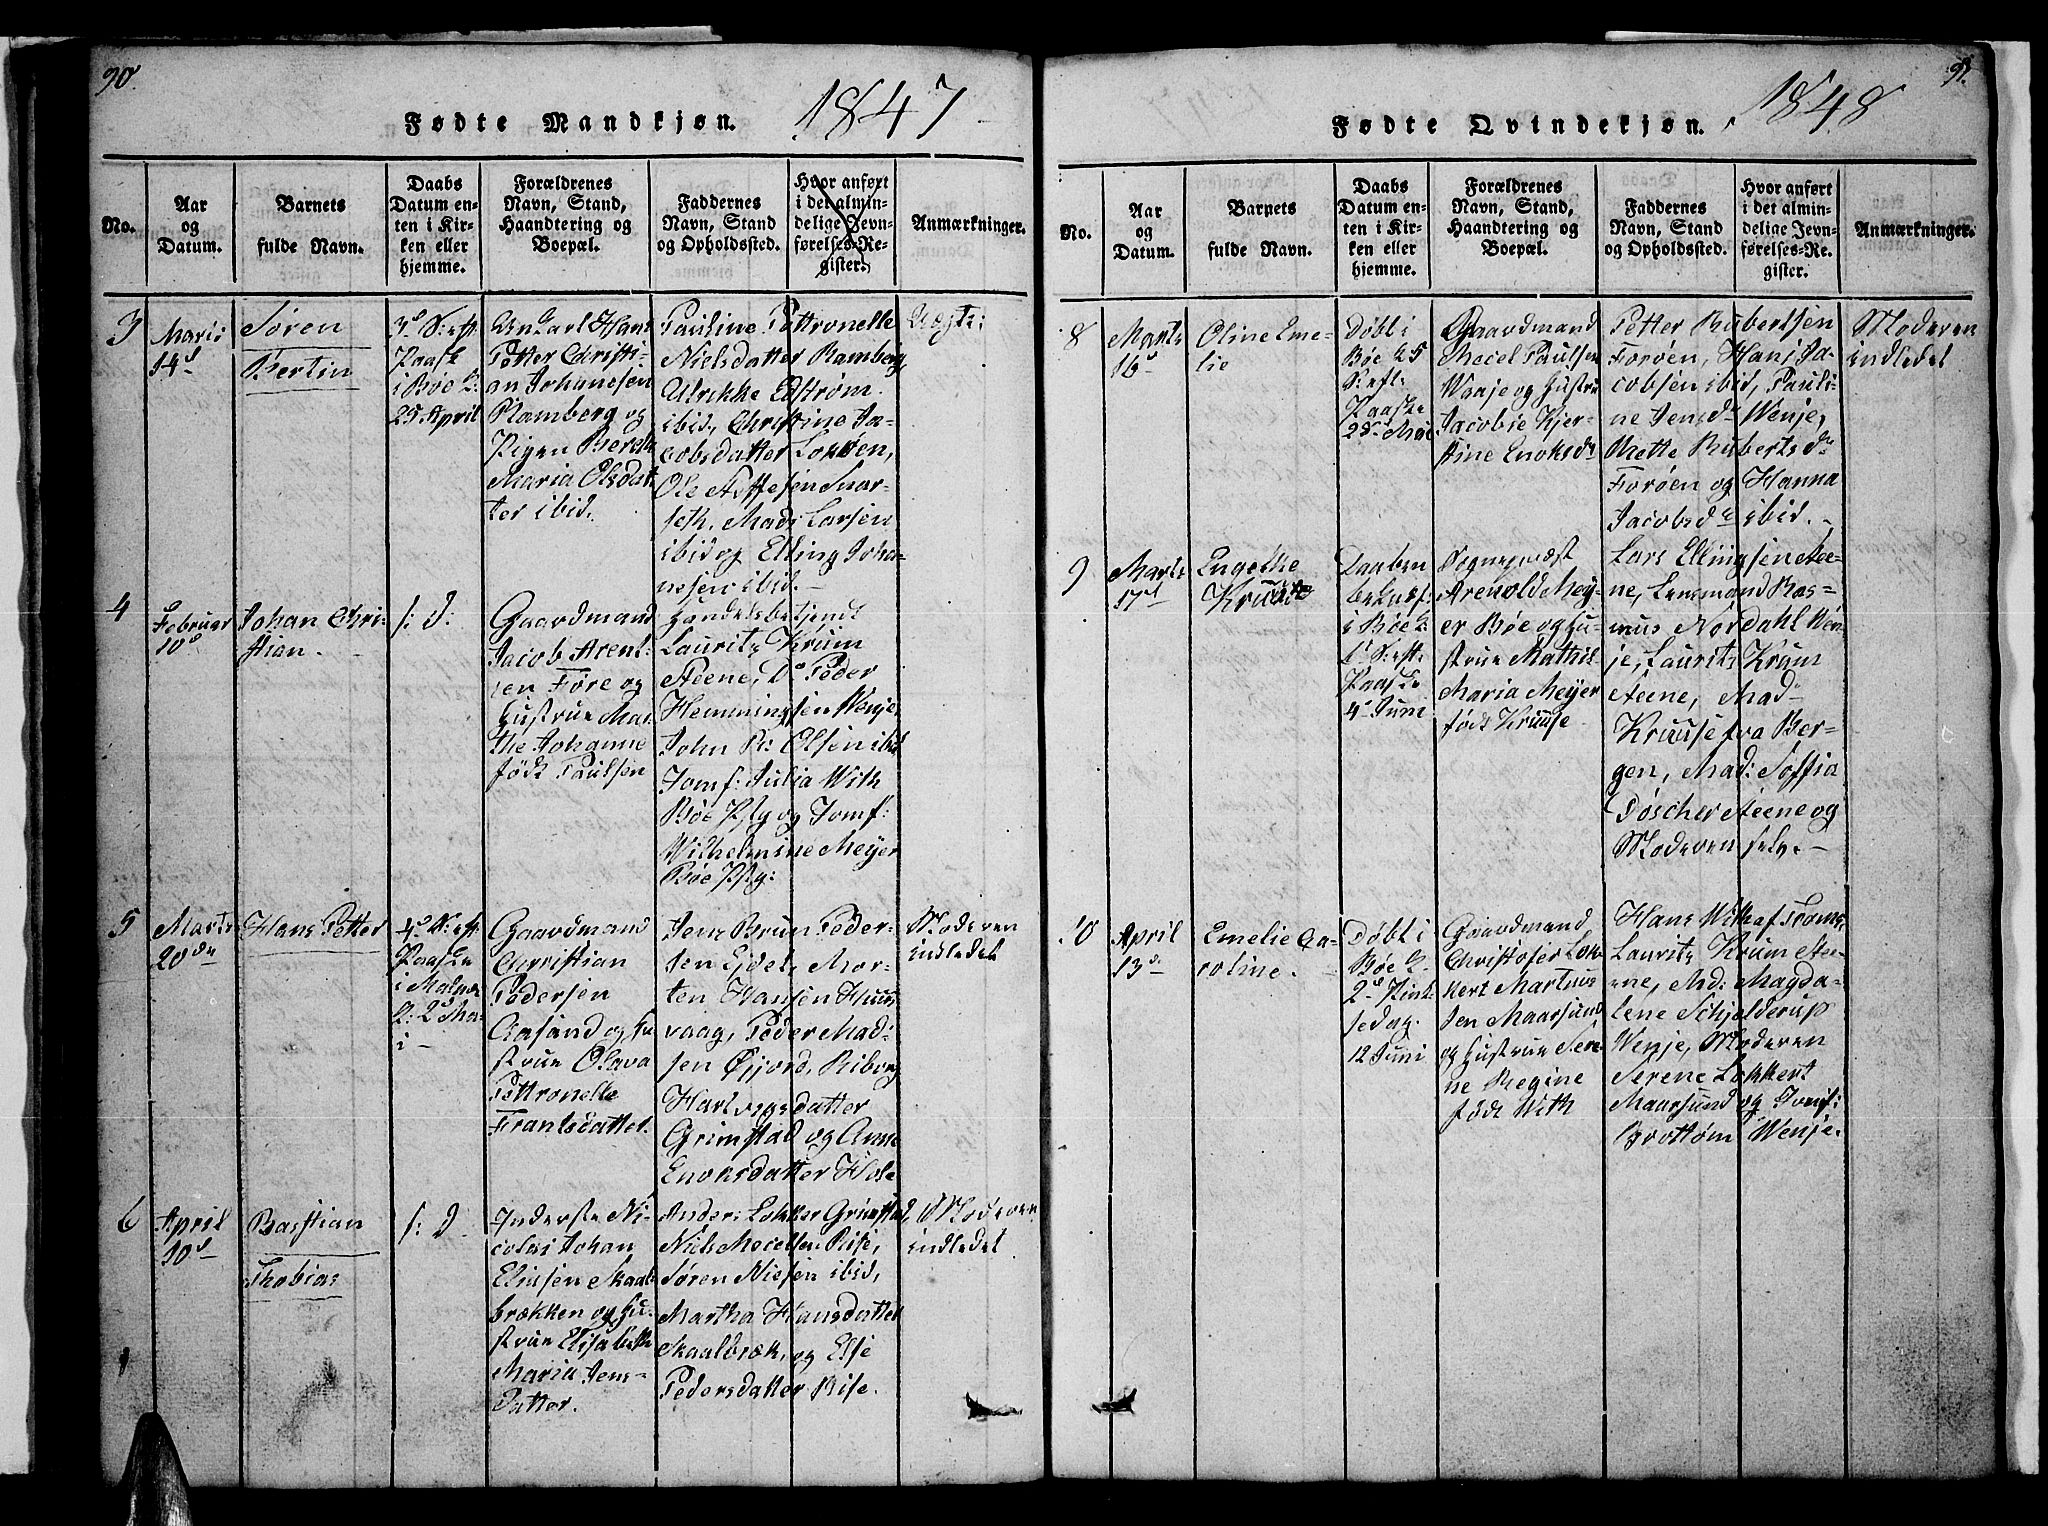 90.
Fødte Mandkjøn.
1847
No.
Aar
og
Datum.
Barnets
fulde Navn.
Daabs
Datum en-
ten i Kir-
ken eller
hjemme.
Forældrenes
Navn, Stand,
Haandtering og
Boepæl.
Faddernes
Navn, Stand
og Opholdssted.
Hvor anført
i det almin-
delige Jevn-
førelses-Re-
gister.
Anmærkninger.
3
Marts
14d
Søren
Bertin
3d S: eft.
Paaske
i Bøe K:
25 April
Ungkarl Hans
Petter Christi-
an Johanesen
Ramberg og
Pigen Bereth
Maria Olsdat-
ter ibid.
Pauline Pettronelle
Nielsdatter Ramberg,
Ulrikke Edstrøm
ibid, Christine Ja-
cobsdatter
Ole Steffesen
Mads Larsen
ibid og Elling Joha-
nesen ibid.
Uægte:
4
Februar
10d
Johan Chri-
stian.
/: D:
Gaardmand
Jacob Arent-
sen Føre og
Hustrue Mar-
the Johanne
født Paulsen
Handelsbetjendt
Lauritz Krum
Steene, Do Peder
Hemmingsen Wenje,
John P: Olsen ibid
Jomf: Julia With
Bøe Pstg og Jomf:
Wilhelmine Meyer
Bøe Pstg:
5
Marts
20de
Hans Petter
4d S: eft.
Paaske
i Malnes
K: 2d Ma-
i
Gaardmand
Christian
Pedersen
Aasand og Hu-
strue Olava
Pettronelle
Frantsdatter.
Jens Brun Peder-
sen Eidet, Mor-
ten Hansen Huus-
vaag, Peder Mad-
sen Øijord, Riborg
Hartvigsdatter
Grimstad og Anne
Enoksdatter Hole
Moderen
indledet
6
April
10d
Bastian
Thobias
/: D.
Inderste Ni-
colai Johan
Eliasen Skaal-
brækken og Hu-
strue Elisabeth
Maria Jens-
datter.
Anders Lokker Grimstad,
Niels Mocelsen Rise,
Søren Nielsen ibid,
Martha Hansdatter
Skaalbræk, og Else
Pedersdatter Rise.
Moderen
indledet
91.
Fødte Qvindekjøn.
1848
No.
Aar
og
Datum.
Barnets
fulde Navn.
Daabs
Datum en-
ten i Kir-
ken eller
hjemme.
Forældrenes
Navn, Stand,
Haandtering og
Boepæl.
Faddernes
Navn, Stand
og Opholdssted.
Hvor anført
i det almin-
delige Jevn-
førelses-Re-
gister.
Anmærkninger.
8
Marts
16d
Oline Eme-
lie
Døbt i
Bøe K 5
S: eft:
Paaske
28 Mai
Gaardmand
Mocel Paulsen
Waaje og Hustrue
Jacobie Kjer-
stine Enoksdr
Petter Rubertsen
Forøen, Hans Ja-
cobsen ibid, Pauli-
ne Jensdr Wenje,
Mette Rubertsdr
Forøen og Hanna
Jacobsdr ibid.
Moderen
indledet
9
Marts
17d
Engelke
Kruuse
Daaben
bekræft:
i Bøe K:
6 S: eft.
Paaske
4d Juni
Sogneprest
Arenold Mey-
er Bøe og Hu-
strue Mathil-
Maria Meyer
født Kruuse
Lars Ellingsen Stee-
ne, Lensmand Ras-
mus Nordahl Wen-
je, Lauritz Krum
Steene, Mad:
Kruuse fra Ber-
gen, Mad: Soffia
Døscher Steene og
Moderen selv.
10
April
13d
Emelie Ca-
roline.
Døbt i
Bøe K.
2d Pint-
sedag.
12 Juni
Gaardmand
Christofer Lok-
kert Martinus-
sen Maarsund
og Hustrue Sere-
ne Regine
født With
Hans With af Troms,
Lauritz Krum Stee-
ne, Md: Magda-
lene Schjelderup
Wenje, Moderen
Serene Lokkert
Maarsund og Jomf:
Brottøm Wenje.